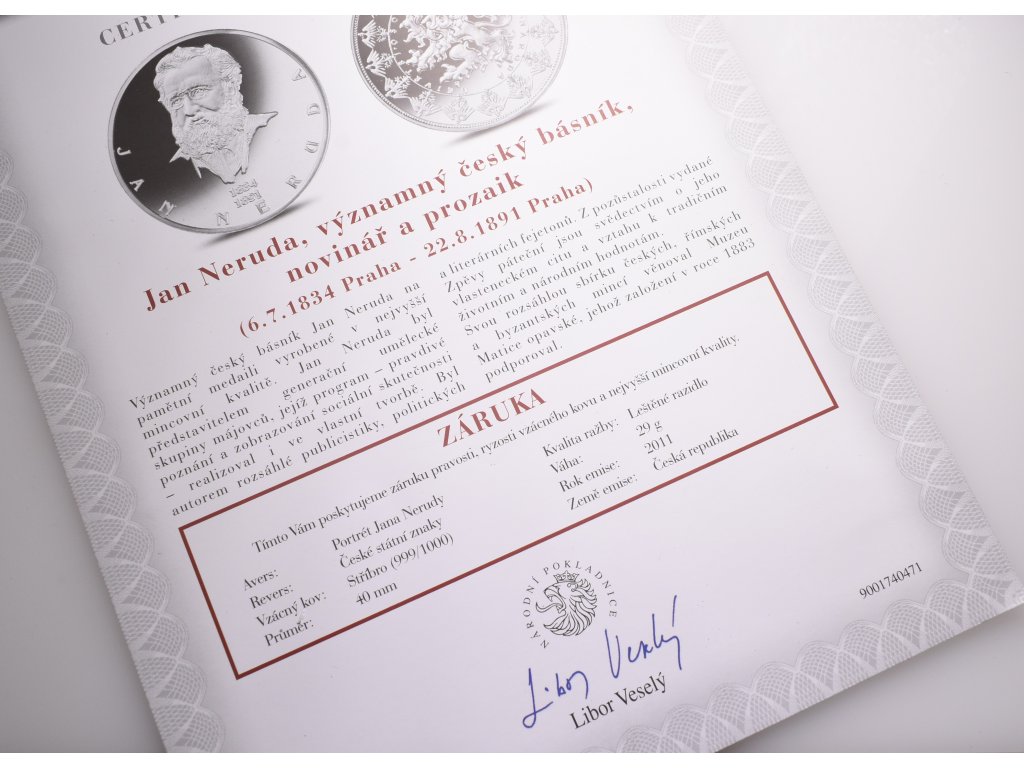 CERTI
JAN NERUDA
1834
1891
Jan Neruda, významný český básník,
novinář a prozaik
(6.7.1834 Praha - 22.8.1891 Praha)
Významný český básník Jan Neruda na
pamětní medaili vyrobené v nejvyšší
mincovní kvalitě. Jan Neruda byl
představitelem generační umělecké
skupiny májovců, jejíž program – pravdivé
poznání a zobrazování sociální skutečnosti
– realizoval i ve vlastní tvorbě. Byl
autorem rozsáhlé publicistiky, politických
a literárních fejetonů. Z pozůstalosti vydané
Zpěvy páteční jsou svědectvím o jeho
vlasteneckém citu a vztahu k tradičním
životním a národním hodnotám.
Svou rozsáhlou sbírku českých, římských
a byzantských mincí věnoval Muzeu
Matice opavské, jehož založení v roce 1883
podporoval.
ZÁRUKA
Tímto Vám poskytujeme záruku pravosti, ryzosti vzácného kovu a nejvyšší mincovní kvality.
Avers: Portrét Jana Nerudy
Revers: České státní znaky
Vzácný kov: Stříbro (999/1000)
Průměr: 40 mm
Kvalita ražby: Leštěné razidlo
Váha: 29 g
Rok emise: 2011
Země emise: Česká republika
NÁRODNÍ POKLADNICE
Libor Veselý
Libor Veselý
9001740471